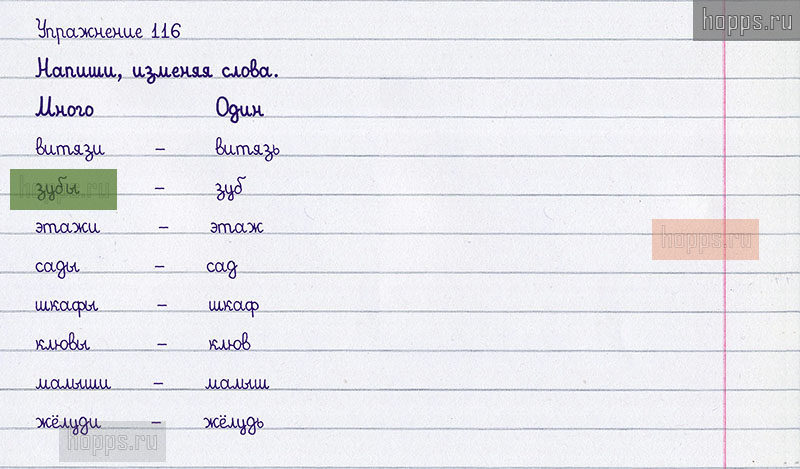 hopps.ru
Упражнение 116
Напиши, изменяя слова.
Много Один
витязи – витязь
зубы – зуб
hopps.ru
этажи – этаж
hopps.ru
сады – сад
шкафы – шкаф
клювы – клюв
малыши – малыш
жёлуди – жёлудь
hopps.ru